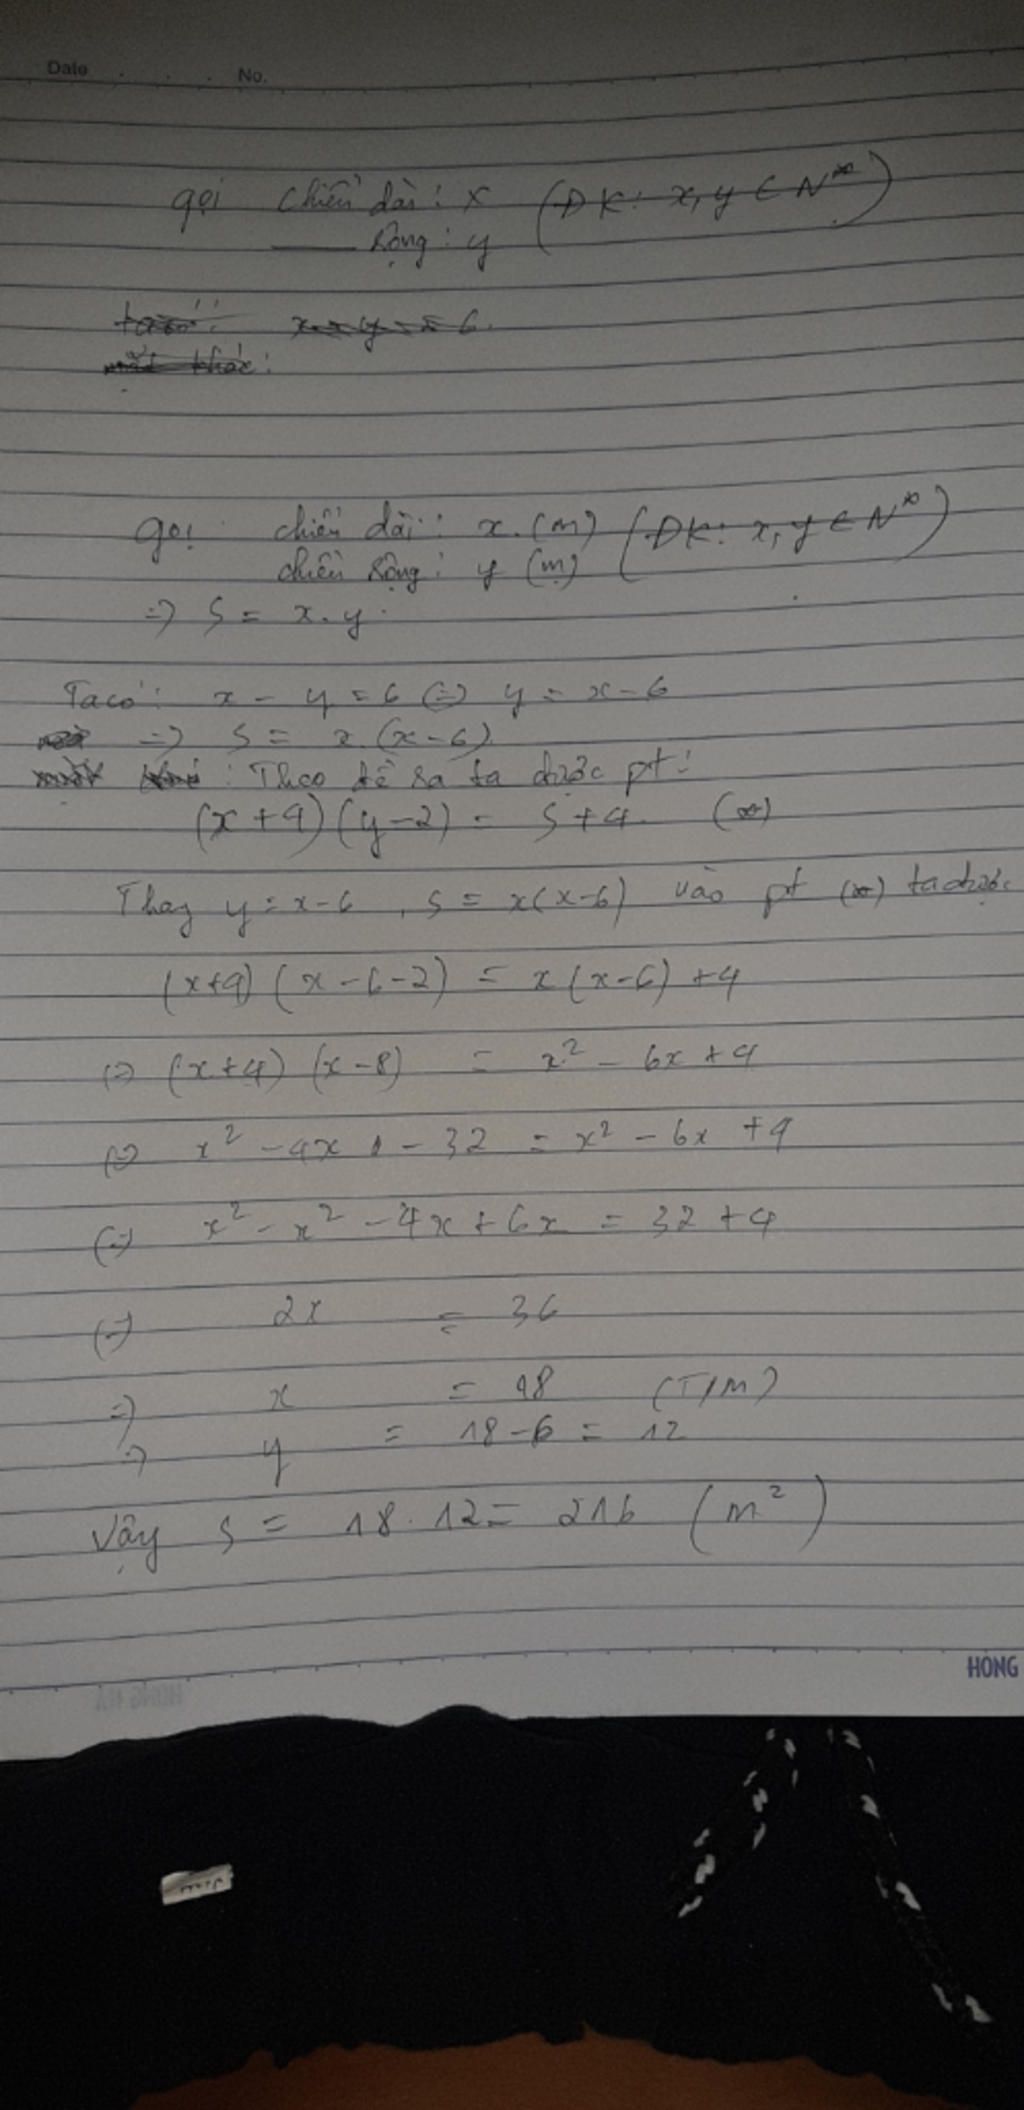 Date No.
gọi chiều dài : x (ĐK: x, y ∈ N*)
rộng : y
ta có : x - y = 6
mặt khác :
gọi chiều dài : x (m) (ĐK: x, y ∈ N*)
chiều rộng : y (m)
=> S = x . y
Ta có : x - y = 6 (=) y = x - 6
=> S = x (x-6)
: Theo đề ra ta được pt :
(x+4) (y-2) = S + 4 (*)
Thay y = x-6 , S = x(x-6) vào pt (*) ta được
(x+4) (x-6-2) = x (x-6) + 4
(=) (x+4) (x-8) = x² - 6x + 4
(=) x² - 4x - 32 = x² - 6x + 4
(=) x² - x² - 4x + 6x = 32 + 4
(=) 2x = 36
=> x = 18 (T/M)
=> y = 18-6 = 12
Vậy S = 18 . 12 = 216 (m²)
HONG